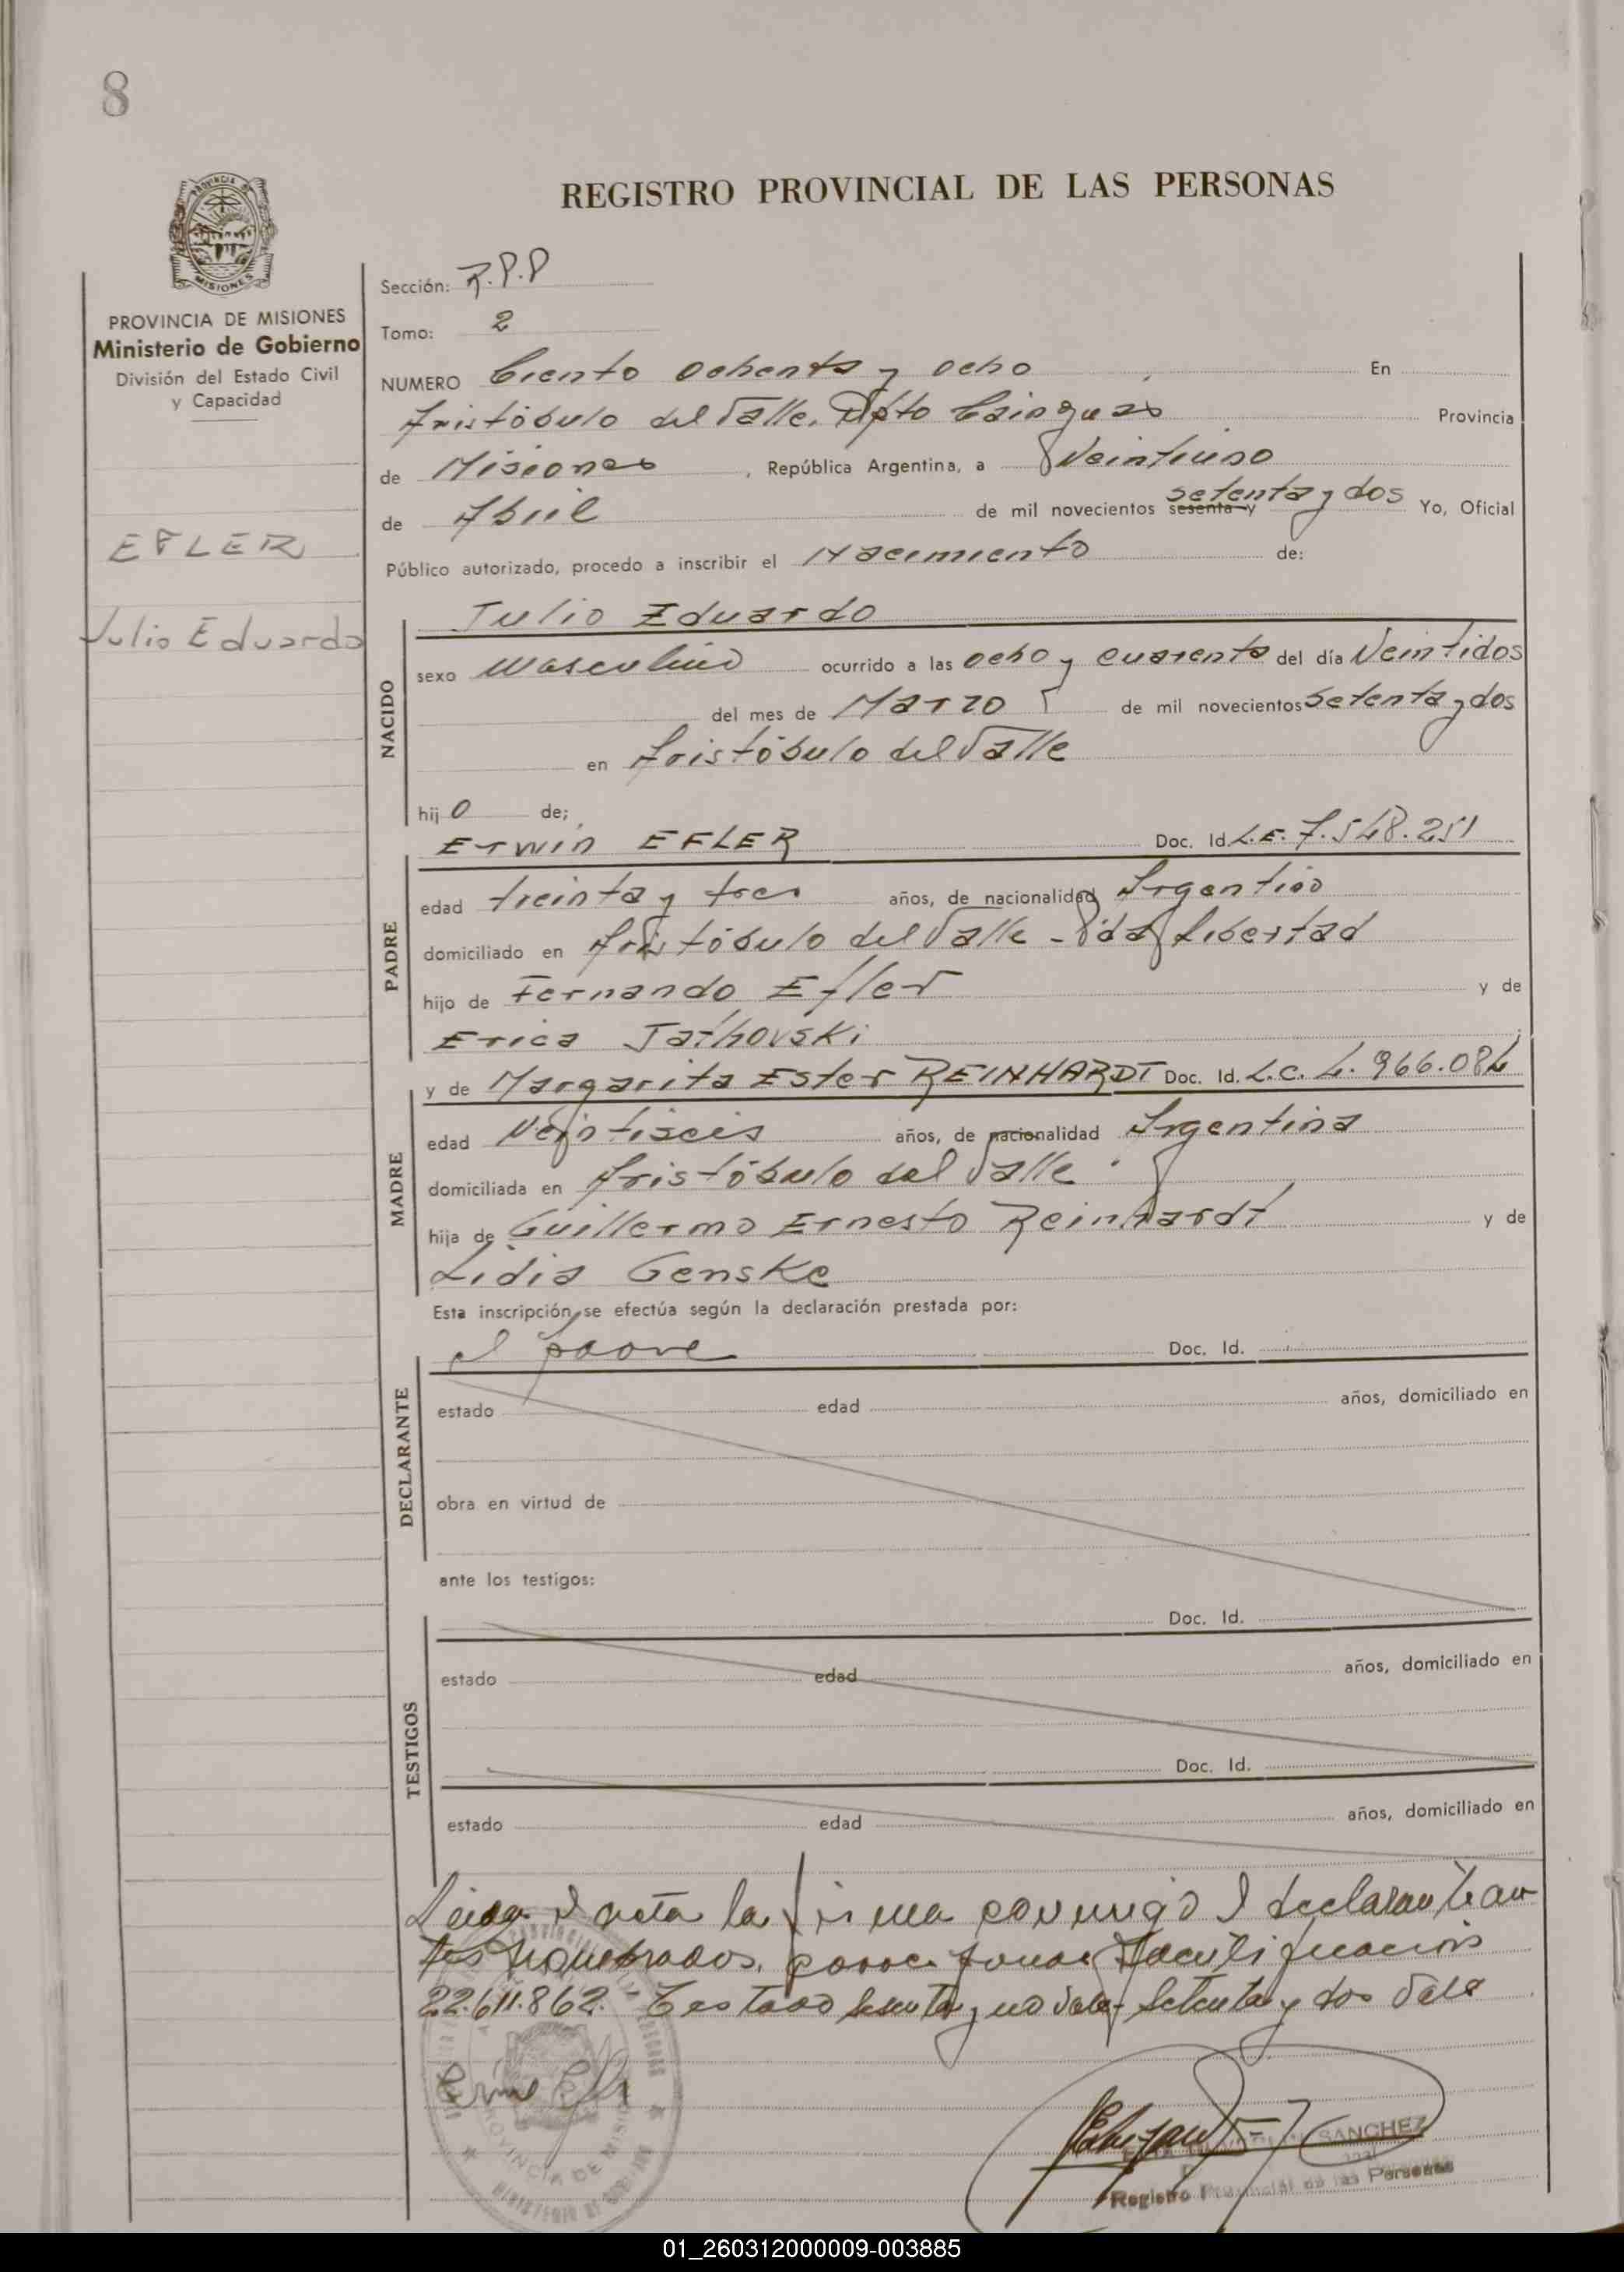 8
REGISTRO PROVINCIAL DE LAS PERSONAS
PROVINCIA DE MISIONES
Ministerio de Gobierno
División del Estado Civil
y Capacidad
EFLER
Julio Eduardo
Sección: R.P.P
Tomo: 2
NUMERO Ciento ochenta y ocho En
Aristóbulo del Valle. Dpto Cainguas Provincia
de Misiones , República Argentina, a Veintiuno
de Abril de mil novecientos sesenta y setenta y dos Yo, Oficial
Público autorizado, procedo a inscribir el Nacimiento de:
NACIDO
Julio Eduardo
sexo Masculino ocurrido a las ocho y cuarenta del día Veintidos
del mes de Marzo de mil novecientos setenta y dos
en Aristóbulo del Valle
hij o de;
PADRE
Erwin EFLER Doc. Id. L.E. 7.548.251
edad treinta y tres años, de nacionalidad Argentino
domiciliado en Aristóbulo del Valle - Libertad
hijo de Fernando Efler y de
Erica
MADRE
y de Margarita Ester REINHARDT Doc. Id. L.C. 4.966.084
edad Veintiseis años, de nacionalidad Argentina
domiciliada en Aristóbulo del Valle
hija de Guillermo Ernesto Reinhardt y de
Lidia Genske
Esta inscripción se efectúa según la declaración prestada por:
DECLARANTE
el padre Doc. Id.
estado edad años, domiciliado en
obra en virtud de
ante los testigos:
TESTIGOS
Doc. Id.
estado edad años, domiciliado en
Doc. Id.
estado edad años, domiciliado en
Leida el acta la firma conmigo el declarante an
tes nombrado.
22.611.862.- Testado sesenta y no vale, setenta y dos vale
SANCHEZ
Registro Provincial de las Personas
PROVINCIA DE MISIONES
01_260312000009-003885